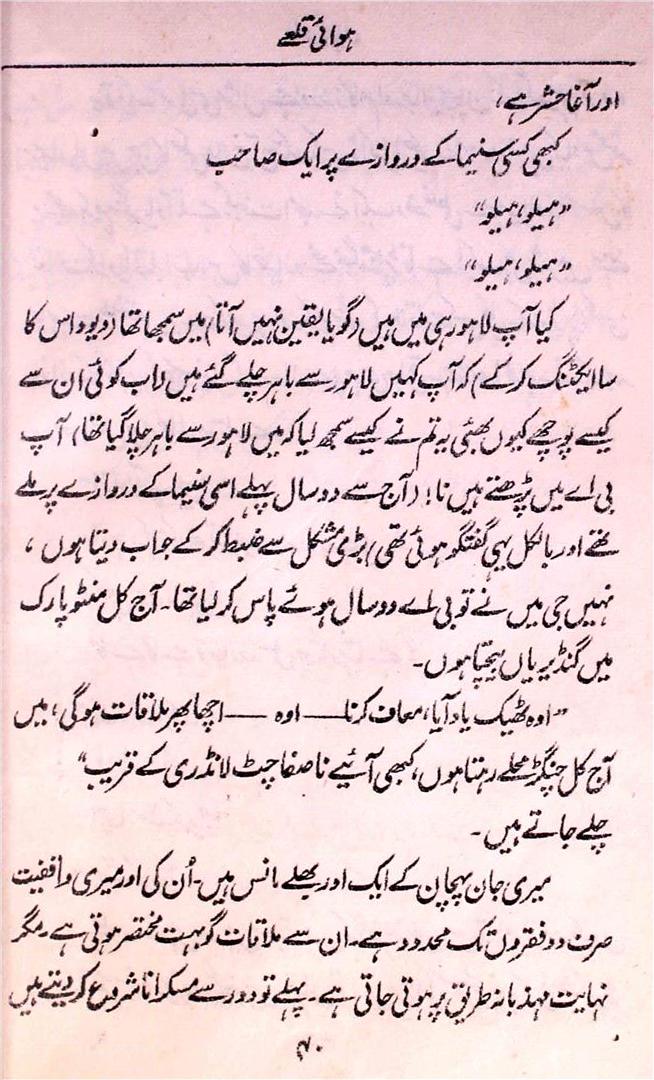 ہوائی قلعے
اور آغا حشر ہے،
کبھی کسی سنیما کے دروازے پر ایک صاحب
”ہیلو، ہیلو“
”ہیلو، ہیلو“
کیا آپ لاہور ہی میں ہیں (گویا یقین نہیں آتا) میں سمجھا تھا (ویوو اس کا
سا ایکٹنگ کر کے) کہ آپ کہیں لاہور سے باہر چلے گئے ہیں (اب کوئی ان سے
کیسے پوچھے کیوں بھئی یہ تم نے کیسے سمجھ لیا کہ میں لاہور سے باہر چلا گیا تھا) آپ
بی اے میں پڑھتے ہیں نا! (آج سے دو سال پہلے اسی سنیما کے دروازے پر ملے
تھے اور بالکل یہی گفتگو ہوئی تھی) بڑی مشکل سے ضبط کر کے جواب دیتا ہوں،
نہیں جی میں نے تو بی اے دو سال ہوئے پاس کر لیا تھا۔ آج کل منٹو پارک
میں گنڈیریاں بیچتا ہوں۔
”اوہ ٹھیک یاد آیا، معاف کرنا —— اوہ —— اچھا پھر ملاقات ہوگی، میں
آج کل چنگڑ محلے رہتا ہوں، کبھی آئیے نا صفا چٹ لانڈری کے قریب“
چلے جاتے ہیں۔
میری جان پہچان کے ایک اور بھلے مانس ہیں۔ اُن کی اور میری واقفیت
صرف دو فقروں تک محدود ہے۔ ان سے ملاقات گو بہت مختصر ہوتی ہے۔ مگر
نہایت مہذبانہ طریق پر ہوتی جاتی ہے۔ پہلے تو دور سے مسکرانا شروع کر دیتے ہیں